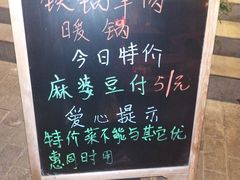 铁锅羊肉
暖锅
今日特价
麻婆豆付5/元
爱心提示
特价菜不能与其它优
惠同时用